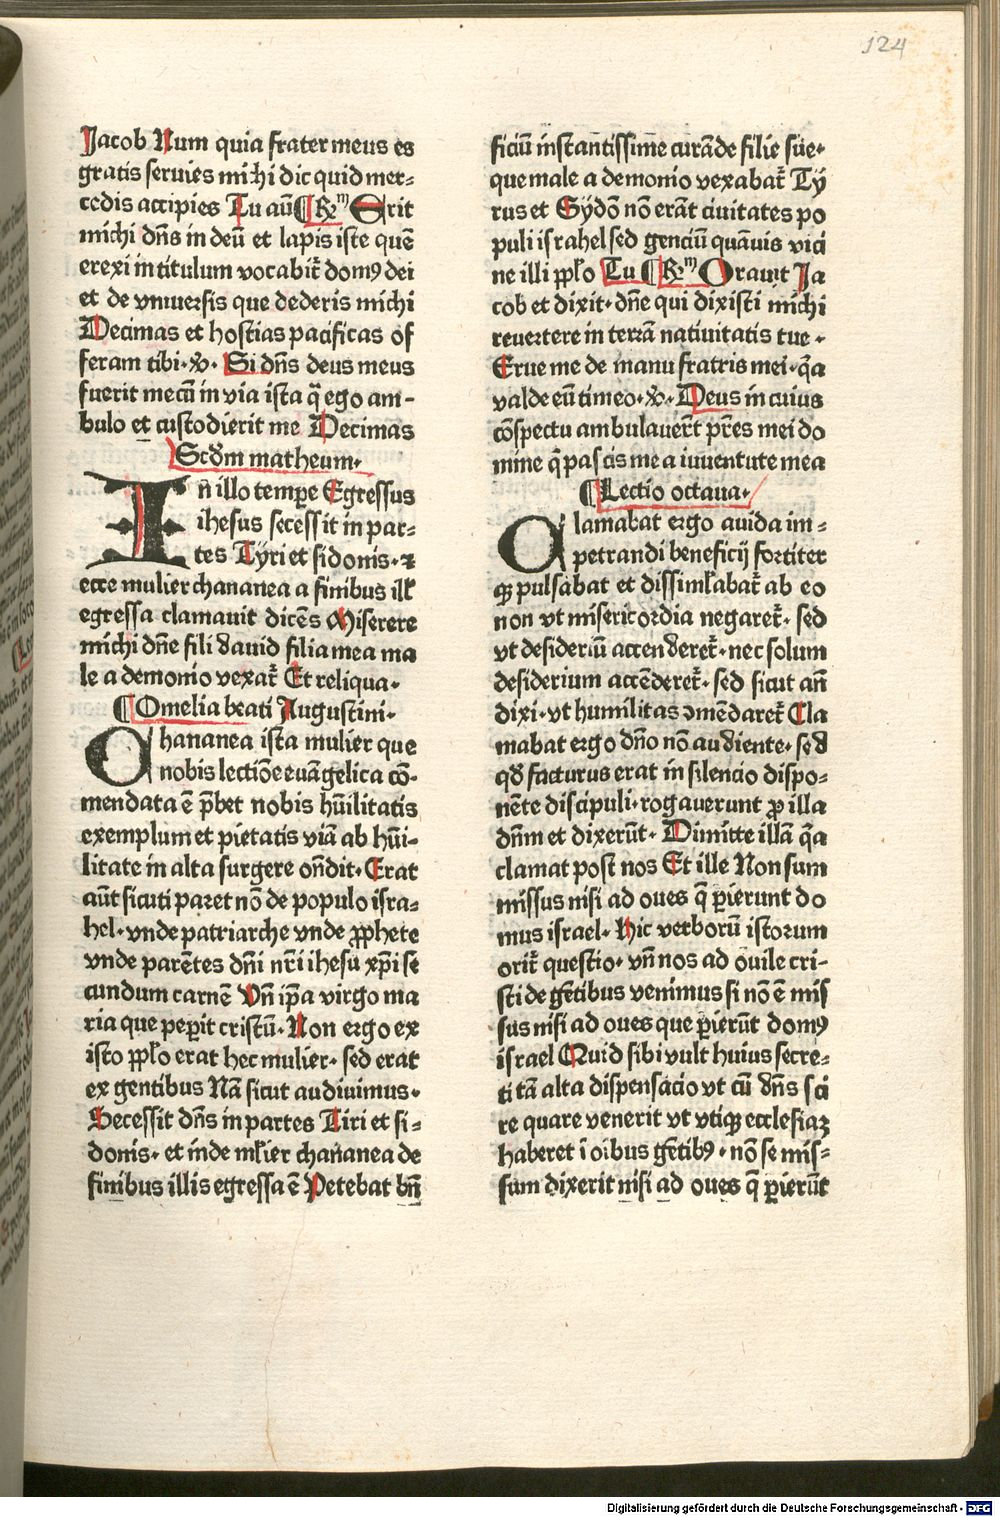 124
Jacob Num quia frater meus es
gratis seruies michi dic quid mer⸗
cedis accipies Tu aū ¶ Rm̄ Erit
michi dn̄s in deū et lapis iste quē
erexi in titulum vocabit̄ domꝰ dei
et de vniuersis que dederis michi
Decimas et hostias pacificas of
feram tibi · v̉ · Si dn̄s deus meus
fuerit mecū in via ista q̄ ego am-
bulo et custodierit me Decimas
Scd̄m matheum·
In illo temꝑe Egressus
ihesus secessit in par-
tes Tyri et sidonis· ⁊
ecce mulier chananea a finibus ill̄
egressa clamauit dicēs Miserere
michi dn̄e fili dauid filia mea ma
le a demonio vexat̄ Et reliqua·
¶ Omelia beati Augustini·
Chananea ista mulier que
nobis lectiōe euāgelica cō-
mendata ē p̄bet nobis hūilitatis
exemplum et pietatis viā ab hūi-
litate in alta surgere on̄dit· Erat
aūt sicuti paret nō de populo isra⸗
hel· vnde patriarche vnde ꝓphete
vnde parētes dn̄i nr̄i ihesu xp̄i se
cundum carnē Vn̄ ip̄a virgo ma
ria que peꝑit cristū· Non ergo ex
isto pp̄lo erat hec mulier· sed erat
ex gentibus Nā sicut audiuimus·
Secessit dn̄s in partes Tiri et si-
donis· et inde ml̄ier chananea de
finibus illis egressa ē Petebat bn̄
ficiū instantissime curāde filie sue·
que male a demonio vexabat̄ Ty
rus et Sydō nō erāt ciuitates po
puli israhel sed genciū quāuis vici
ne illi pp̄lo Tu ¶ Rm̄ Orauit Ja
cob et dixit· dn̄e qui dixisti michi
reuertere in terrā natiuitatis tue·
Erue me de manu fratris mei· q̄a
valde eū timeo· v̉· Deus in cuius
cōspectu ambulauer̄t pr̄es mei do
mine q̄ pascis me a iuuentute mea
¶ Lectio octaua·
Clamabat ergo auida im⸗
petrandi beneficij fortiter
qꝫ pulsabat et dissiml̄abat̄ ab eo
non vt misericordia negaret̄· sed
vt desideriū accenderet̄· nec solum
desiderium accēderet̄· sed sicut an̄
dixi· vt humilitas ɔmēdaret̄ Cla
mabat ergo dn̄o nō audiente· sed
qd̄ facturus erat in silencio dispo⸗
nēte discipuli· rogauerunt ꝓ illa
dn̄m et dixerūt· Dimitte illā q̄a
clamat post nos Et ille Non sum
missus nisi ad oues q̄ ꝑierunt do
mus israel· Hic verborū istorum
orit̄ questio· vn̄ nos ad ouile cri-
sti de gētibus venimus si nō ē mis
sus nisi ad oues que ꝑierūt domꝰ
israel Quid sibi vult huius secre⸗
ti tā alta dispensacio vt cū dn̄s sci
re quare venerit vt vtiqꝫ ecclesiaꝫ
haberet ī oībus gētibꝰ· nō se mis⸗
sum dixerit nisi ad oues q̄ ꝑierūt
Digitalisierung gefördert durch die Deutsche Forschungsgemeinschaft - DFG